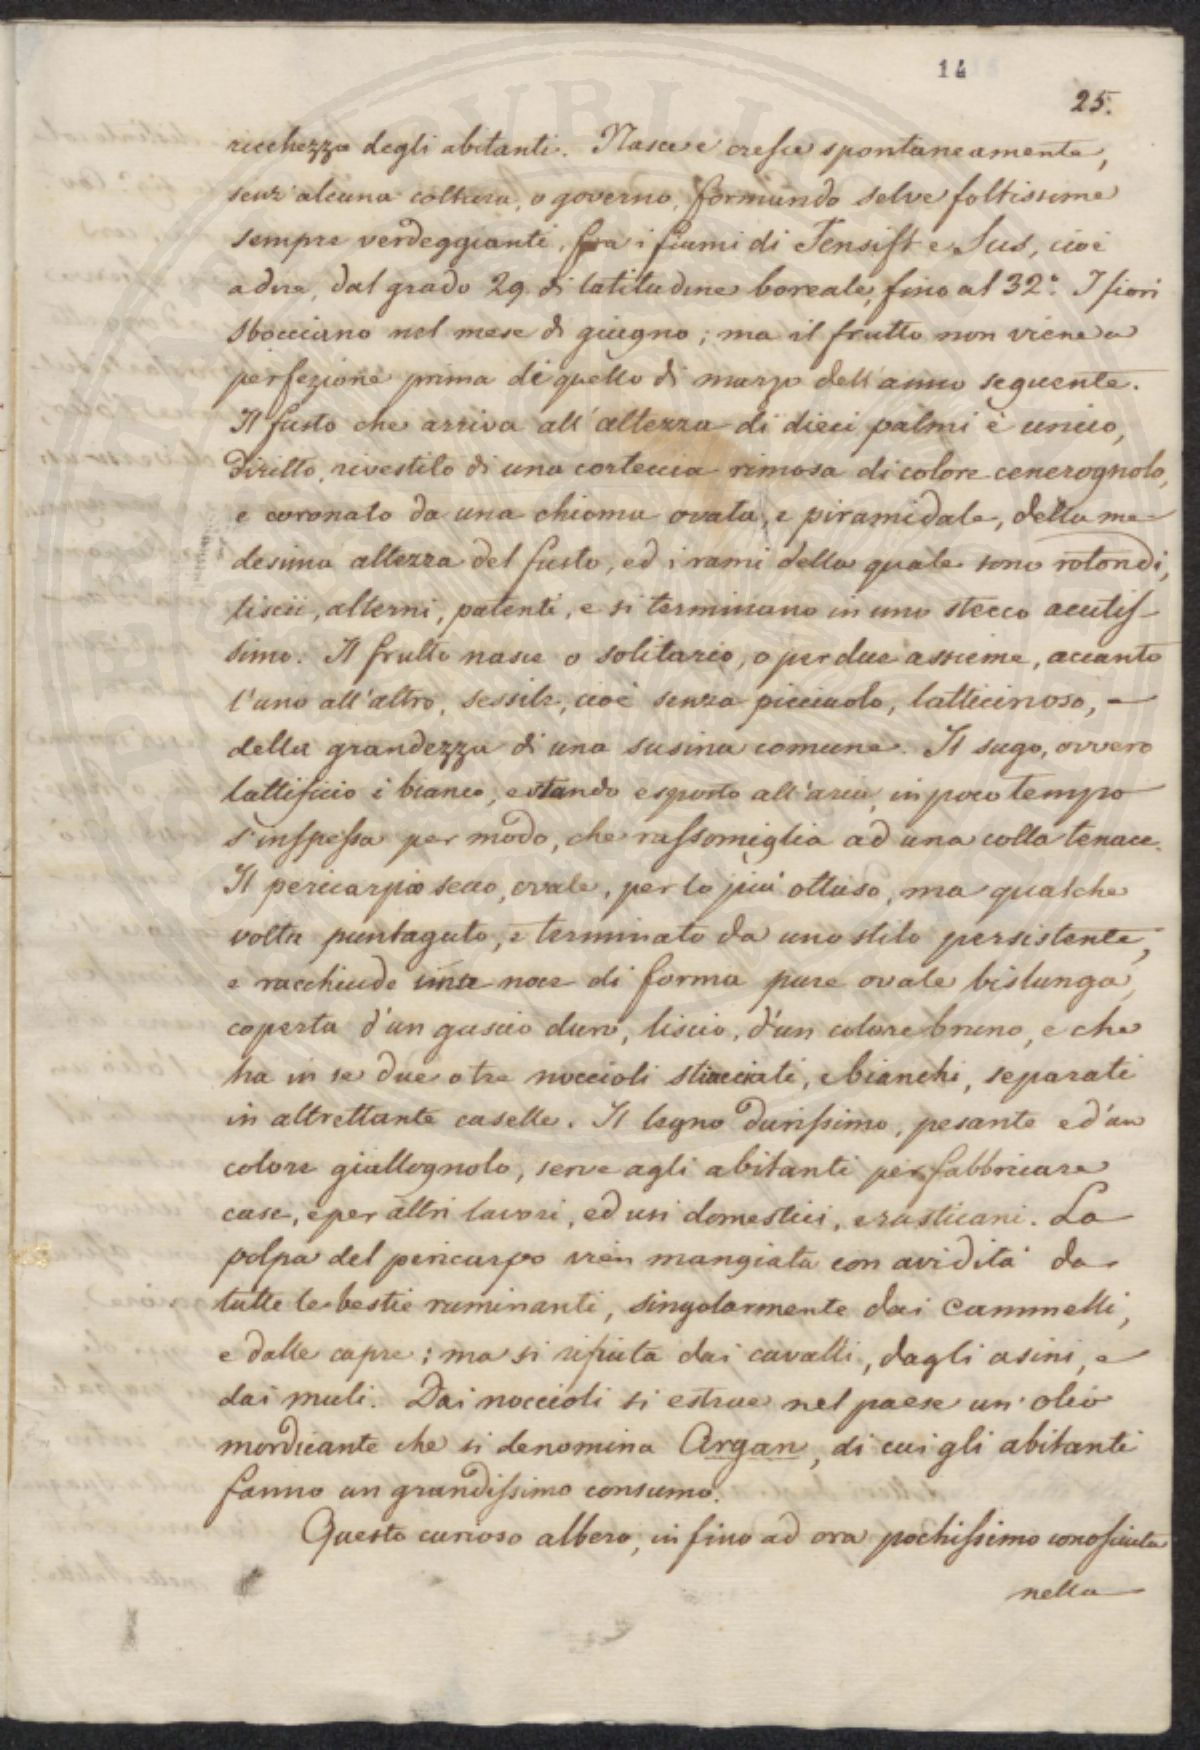 14
25.
ricchezza degli abitanti. Nasce e cresce spontaneamente,
senz'alcuna coltura, o governo, formando selve foltissime
sempre verdeggianti, fra i fiumi di Tensift e Sus, cioè
a dire, dal grado 29 di latitudine boreale, fino al 32.° I fiori
sbocciano nel mese di giugno; ma il frutto non viene a
perfezione prima di quello di marzo dell'anno seguente.
Il fusto che arriva all'altezza di dieci palmi è unico,
diritto, rivestito di una corteccia rimosa di colore cenerognolo,
e coronato da una chioma ovata, e piramidale, della me-
desima altezza del fusto, ed i rami della quale sono rotondi,
liscii, alterni, patenti, e si terminano in uno stecco acutis-
simo. Il frutto nasce o solitario, o per due assieme, accanto
l'uno all'altro, sessile, cioè senza picciuolo, latticinoso, -
della grandezza di una susina comune. Il sugo, ovvero
lattificio è bianco, e stando esposto all'aria, in poco tempo
s'inspessa per modo, che rassomiglia ad una colla tenace.
Il pericarpio secco, ovale, per lo più ottuso, ma qualche
volta puntaguto, e terminato da uno stilo persistente,
e racchiude una noce di forma pure ovale bislunga,
coperta d'un guscio duro, liscio, d'un colore bruno, e che
ha in se due o tre noccioli stiacciati, e bianchi, separati
in altrettante caselle. Il legno durissimo, pesante e d'un
colore giallognolo, serve agli abitanti per fabbricare
case, e per altri lavori, ed usi domestici, e rusticani. La
polpa del pericarpo vien mangiata con avidità da
tutte le bestie ruminanti, singolarmente dai Cammelli,
e dalle capre; ma si rifiuta dai cavalli, dagli asini, e
dai muli. Dai noccioli si estrae nel paese un olio
mordicante che si denomina Argan, di cui gli abitanti
fanno un grandissimo consumo.
Questo curioso albero, in fino ad ora pochissimo conosciuto
nella